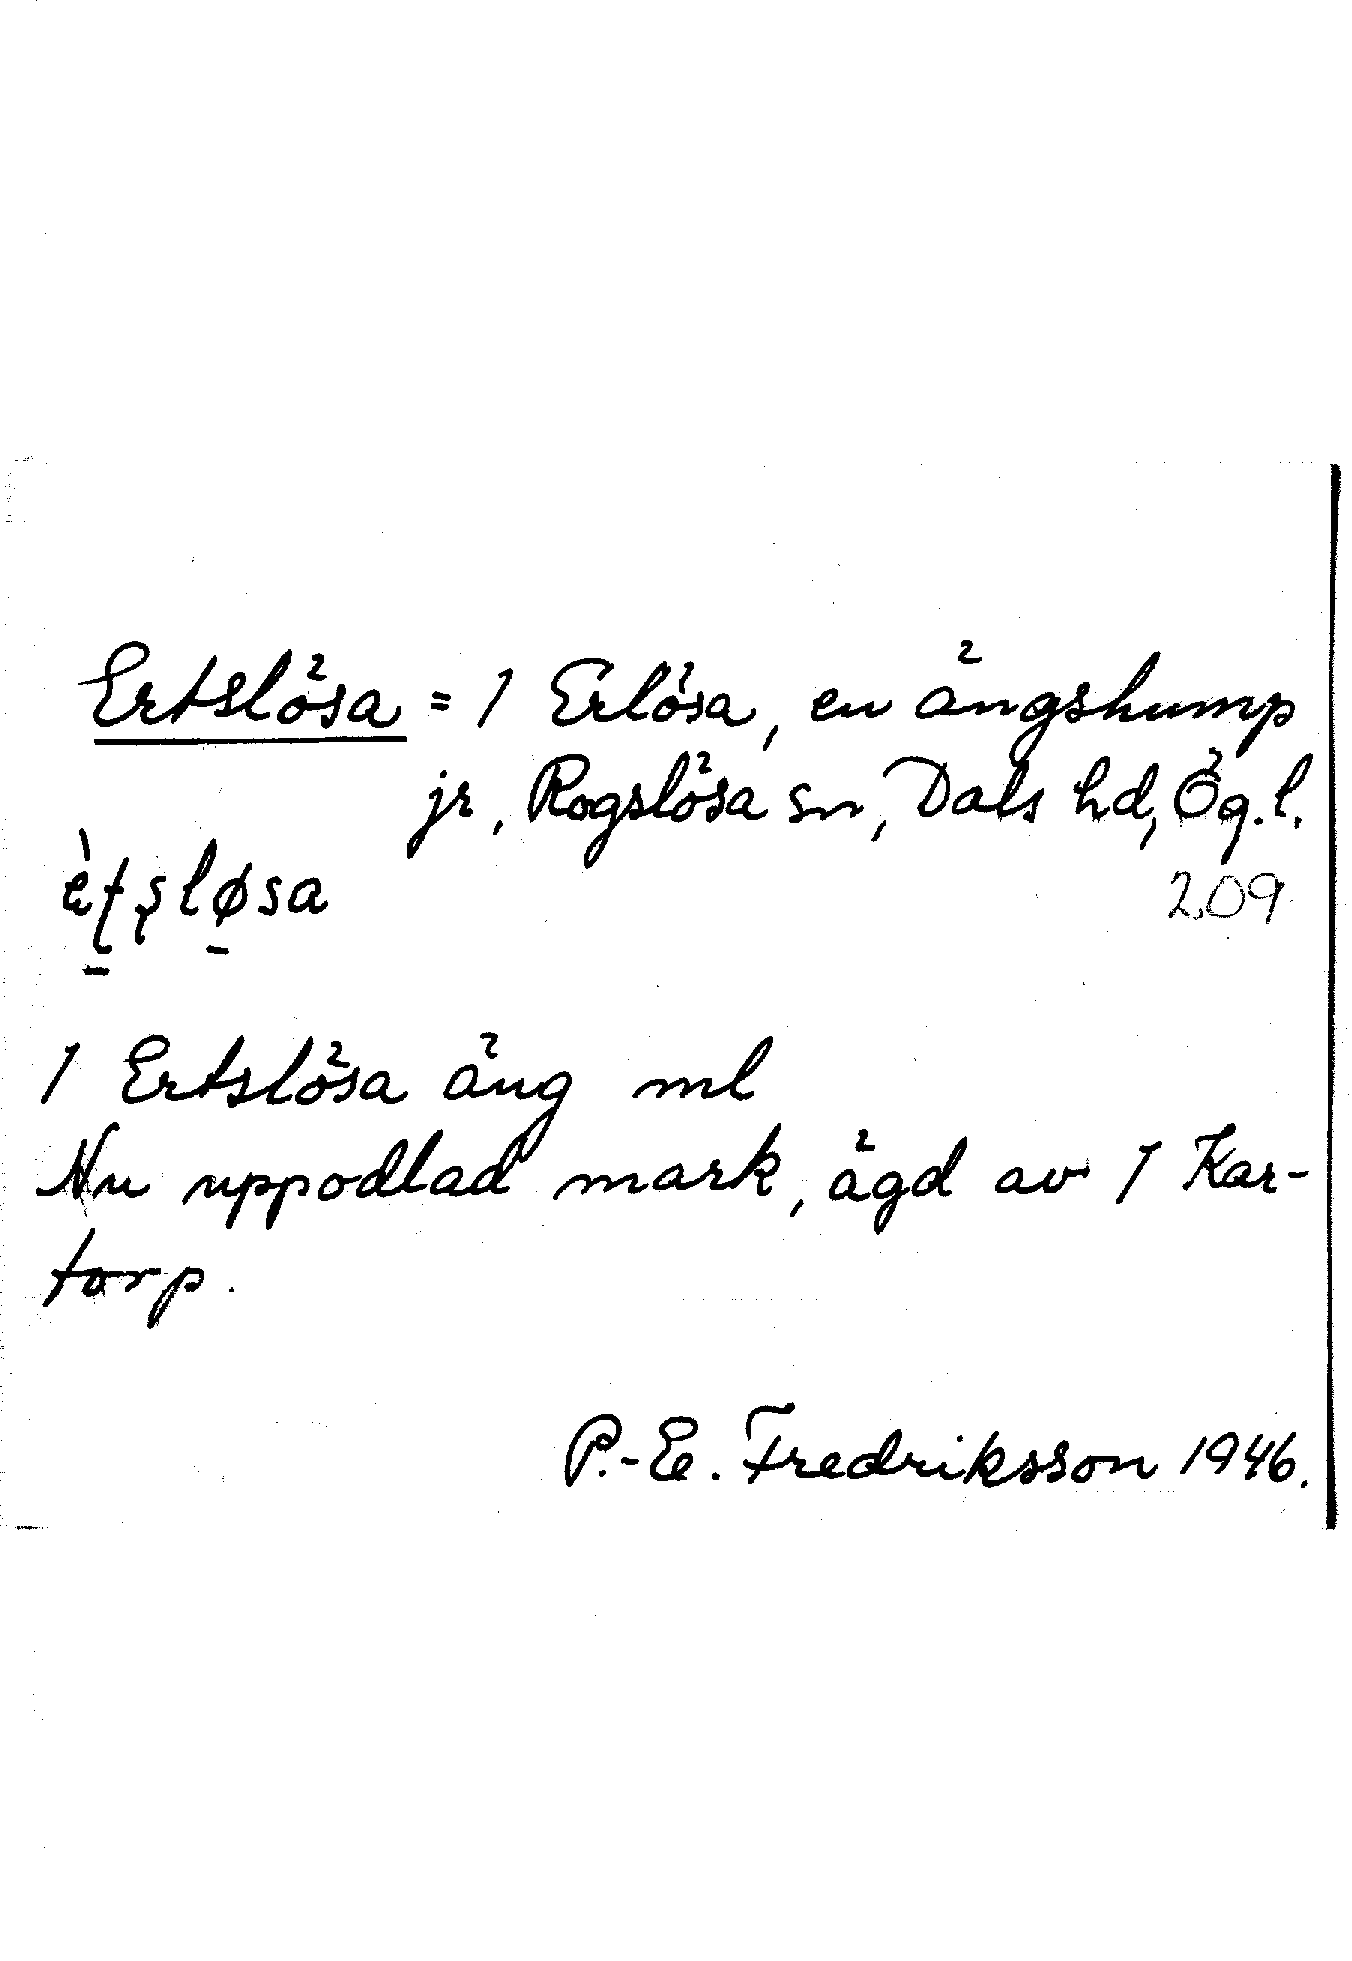 Ertslösa = 1 Erlösa, en ängshump
jr, Rogslösa sn, Dals hd, Ög.l.
209
1 Ertslösa äng ml
Nu uppodlad mark, ägd av 1 Kar-
torp.
P.-E. Fredriksson 1946.